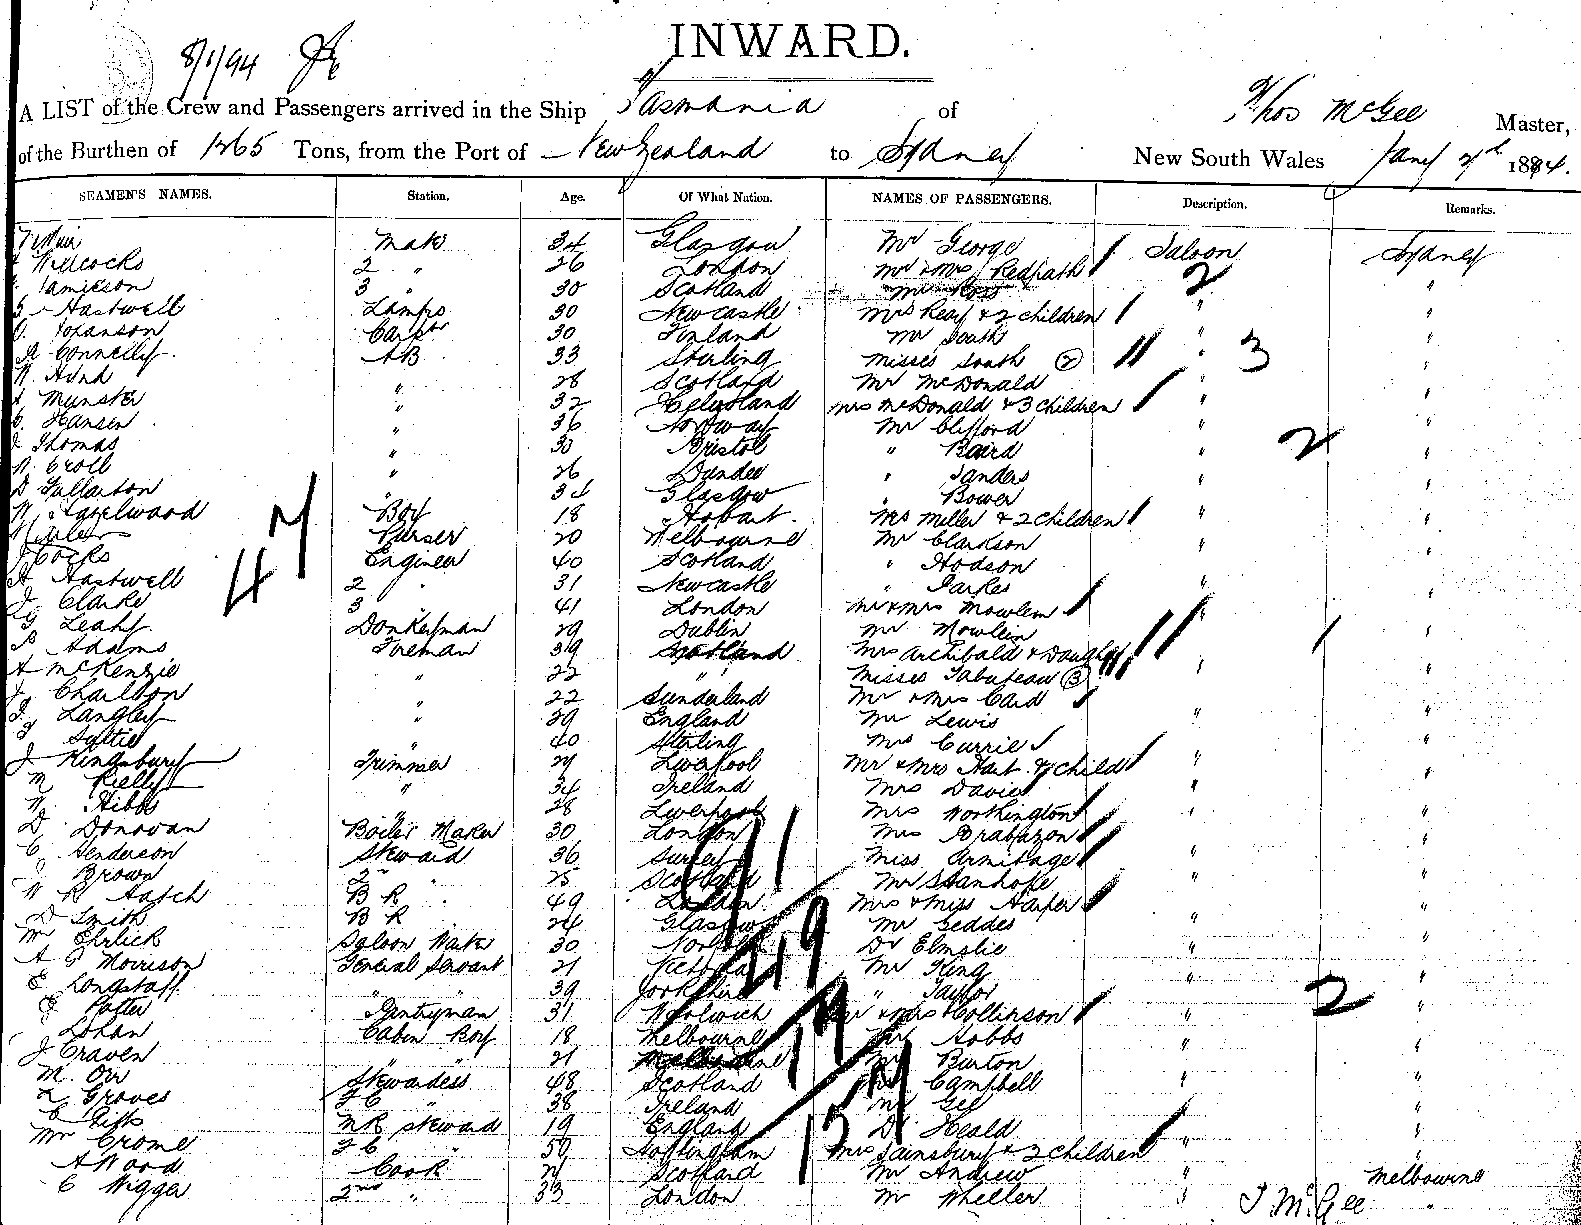 INWARD.
8/1/94
A LIST of the Crew and Passengers arrived in the Ship Tasmania of Thos McGee Master,
of the Burthen of 1265 Tons, from the Port of New Zealand to Sydney New South Wales Jany 7th 1894.
SEAMEN'S NAMES. Station. Age. Of What Nation. NAMES OF PASSENGERS. Description. Remarks.
Muir Mate 34 Glasgow Mr George Saloon Sydney
Willcocks 2 " 26 London Mr & Mrs Redpath 2 "
Jamieson 3 " 30 Scotland
Hastwell Lamps 30 Newcastle Mrs Reay & 2 children "
Johanson Carpr 30 Finland Mr South "
Connelly AB 33 Stirling Misses South (2) " 3 "
Hund " 28 Scotland Mr McDonald "
Munster " 32 Heligoland Mrs McDonald & 3 children "
Hansen " 36 Norway Mr Clifford " 2 "
Thomas " 30 Bristol " Baird "
Croll " 26 Dundee " Sanders "
D Fullarton " 34 Glasgow " Bower "
W. Hazelwood Boy 18 Hobart Mrs Miller & 2 children "
Purser 20 Melbourne Mr Clarkson "
J Cocks Engineer 40 Scotland " Hodson "
A Hastwell 2 " 31 Newcastle " Parkes "
J. Clarke 3 " 41 London Mr & Mrs Mowlem "
G Leahy Donkeyman 29 Dublin Mr Mowlem 1 "
Adams Fireman 39 Scotland Mrs Archibald & Daughter "
A McKenzie " 22 " Misses Tabuteau (3) "
J. Charlton " 22 Sunderland Mr & Mrs Card "
Langley " 29 England Mr Lewis "
" 40 Stirling Mrs Currie "
J Kingsbury Trimmer 29 Liverpool Mr & Mrs Hart & child "
M Kielly " 34 Ireland Mrs Davies "
W. Hibbs " 28 Liverpool Mrs Worthington "
D. Donovan Boiler Maker 30 London Mrs Brabazon "
C Henderson Steward 36 Surrey Miss Armitage "
J Brown 2nd " 25 Scotland Mr Stanhope "
W R Hatch B R 49 London Mrs & Miss Harper "
D Smith B R 24 Glasgow Mr Geddes "
Mr Ehrlich Saloon Waiter 30 Dr Elmslie "
A J Morrison General Servant 21 Victoria Mr King "
E Longstaff " " 39 Yorkshire " Taylor 2 "
Potter Pantryman 31 Woolwich Mr & Mrs Collinson "
Lohan Cabin Boy 18 Melbourne Mr Hobbs "
J Craven " " 21 Melbourne Mr Burton "
M. Orr Stewardess 48 Scotland Campbell "
L Groves F C " 38 Ireland Mr Gee "
NR Steward 19 England Dr Heald "
Mr Crome F C " 50 Nottingham Mrs Sainsbury & 2 children "
A Wood Cook 21 Scotland Mr Andrew " Melbourne
C Wigger 2nd " 33 London Mr Wheeler " "
47
91
49
T McGee